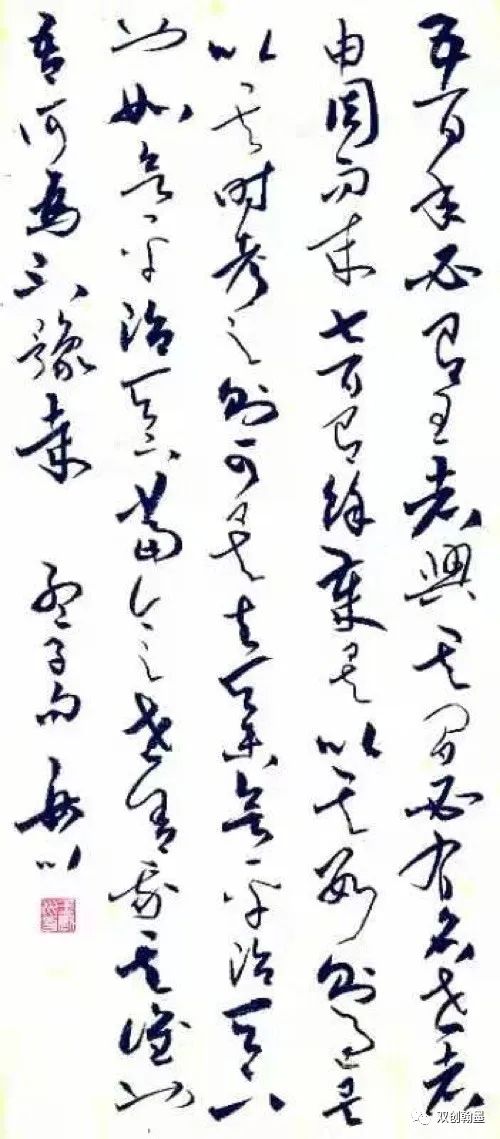 五百年必有王者興其間必有名世者
由周而來七百有餘歲矣以其數則過矣
以其時考之則可矣夫天未欲平治天下
也如欲平治天下當今之世舍我其誰也
吾何為不豫哉 孟子句
双创翰墨